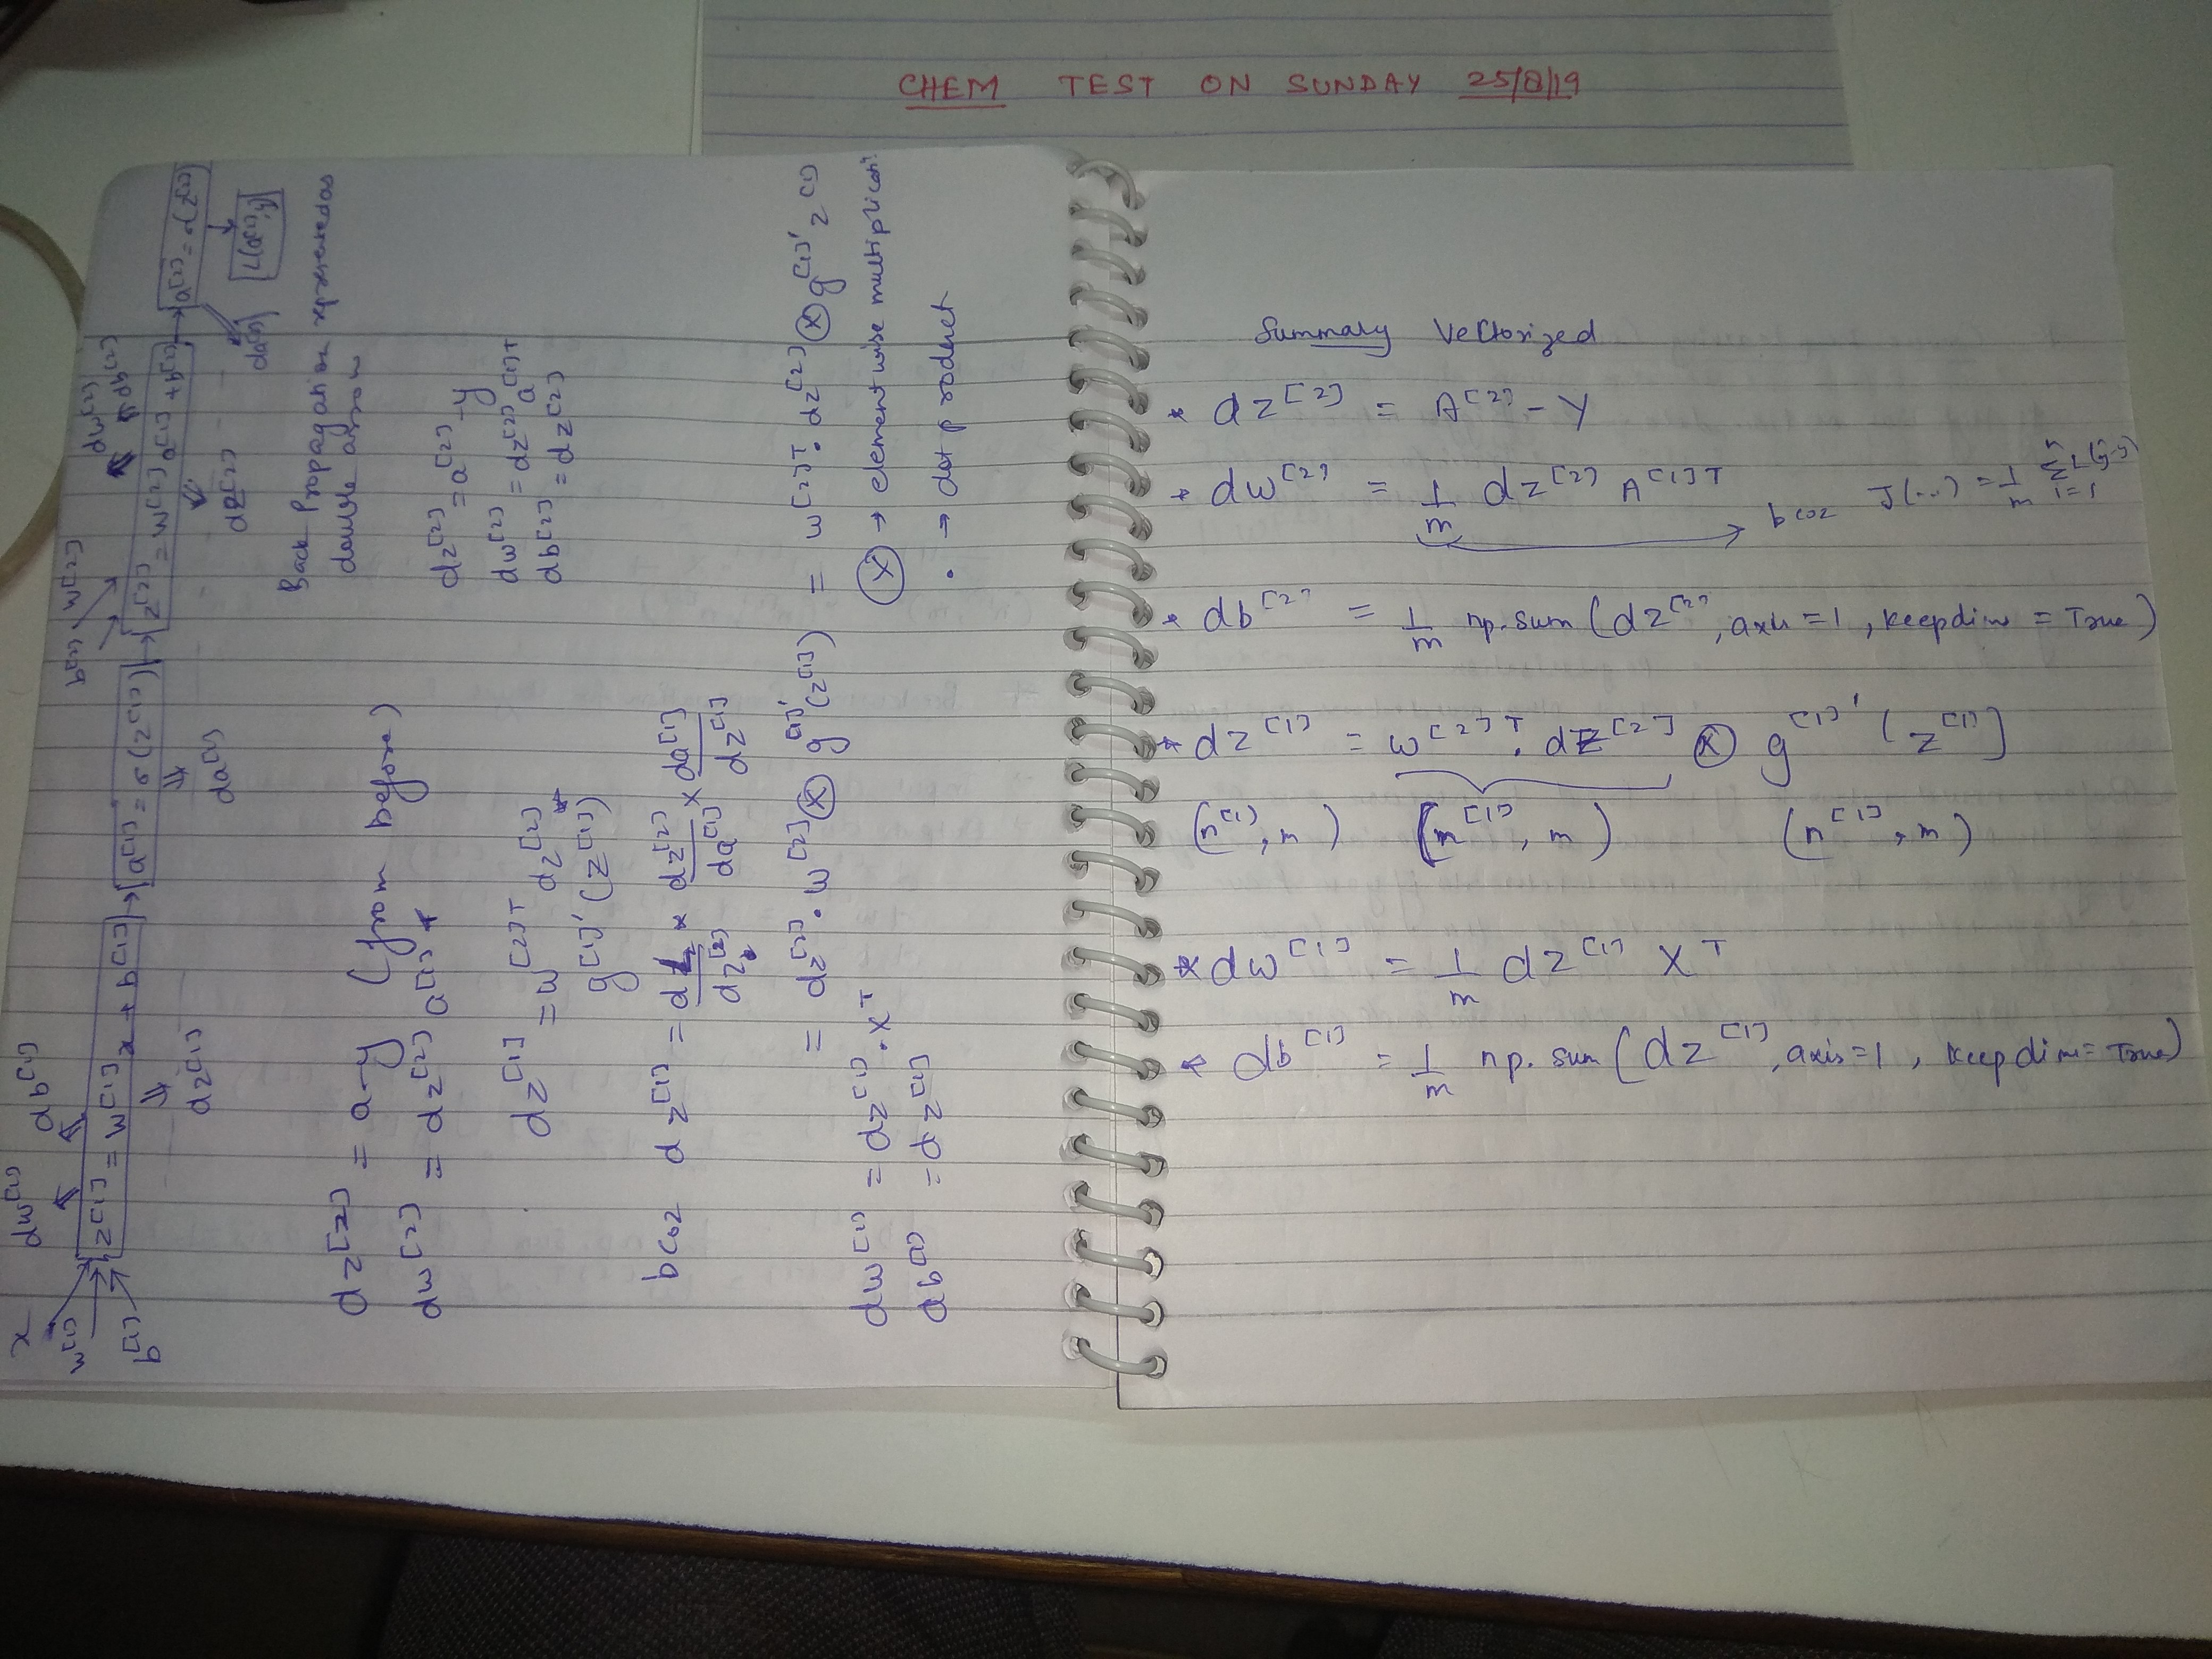 CHEM TEST ON SUNDAY 25/8/19
x
w[1]
b[1]
dw[1] db[1]
z[1] = w[1]x + b[1] → a[1] = σ(z[1]) → z[2] = w[2]a[1] + b[2] → a[2] = σ(z[2])
b[2] w[2]
dw[2] db[2]
dz[1] da[1] dz[2] da[2]
L(a[2], y)
Back Propagation represented as
double arrow
dz[2] = a-y (from before)
dw[2] = dz[2] a[1]T
dz[2] = a[2] - y
dw[2] = dz[2] a[1]T
db[2] = dz[2]
dz[1] = w[2]T dz[2] *
g[1]' (z[1])
bcoz dz[1] = dL/dz[2] × dz[2]/da[1] × da[1]/dz[1]
= dz[2] . w[2] ⊗ g[1]' (z[1]) = w[2]T . dz[2] ⊗ g[1]' z[1]
dw[1] = dz[1] . xT
db[1] = dz[1]
⊗ → element wise multiplicati
. → dot product
Summary Vectorized
* dz[2] = A[2] - Y
* dw[2] = 1/m dz[2] A[1]T
bcoz J(...) = 1/m Σ i=1 L(ŷ-y)
* db[2] = 1/m np.sum (dz[2], axis=1, keepdim = True)
* dz[1] = w[2]T . dz[2] ⊗ g[1]' (z[1])
(n[1], m) (n[1], m) (n[1], m)
* dw[1] = 1/m dz[1] XT
* db[1] = 1/m np.sum (dz[1], axis=1, keepdim = True)